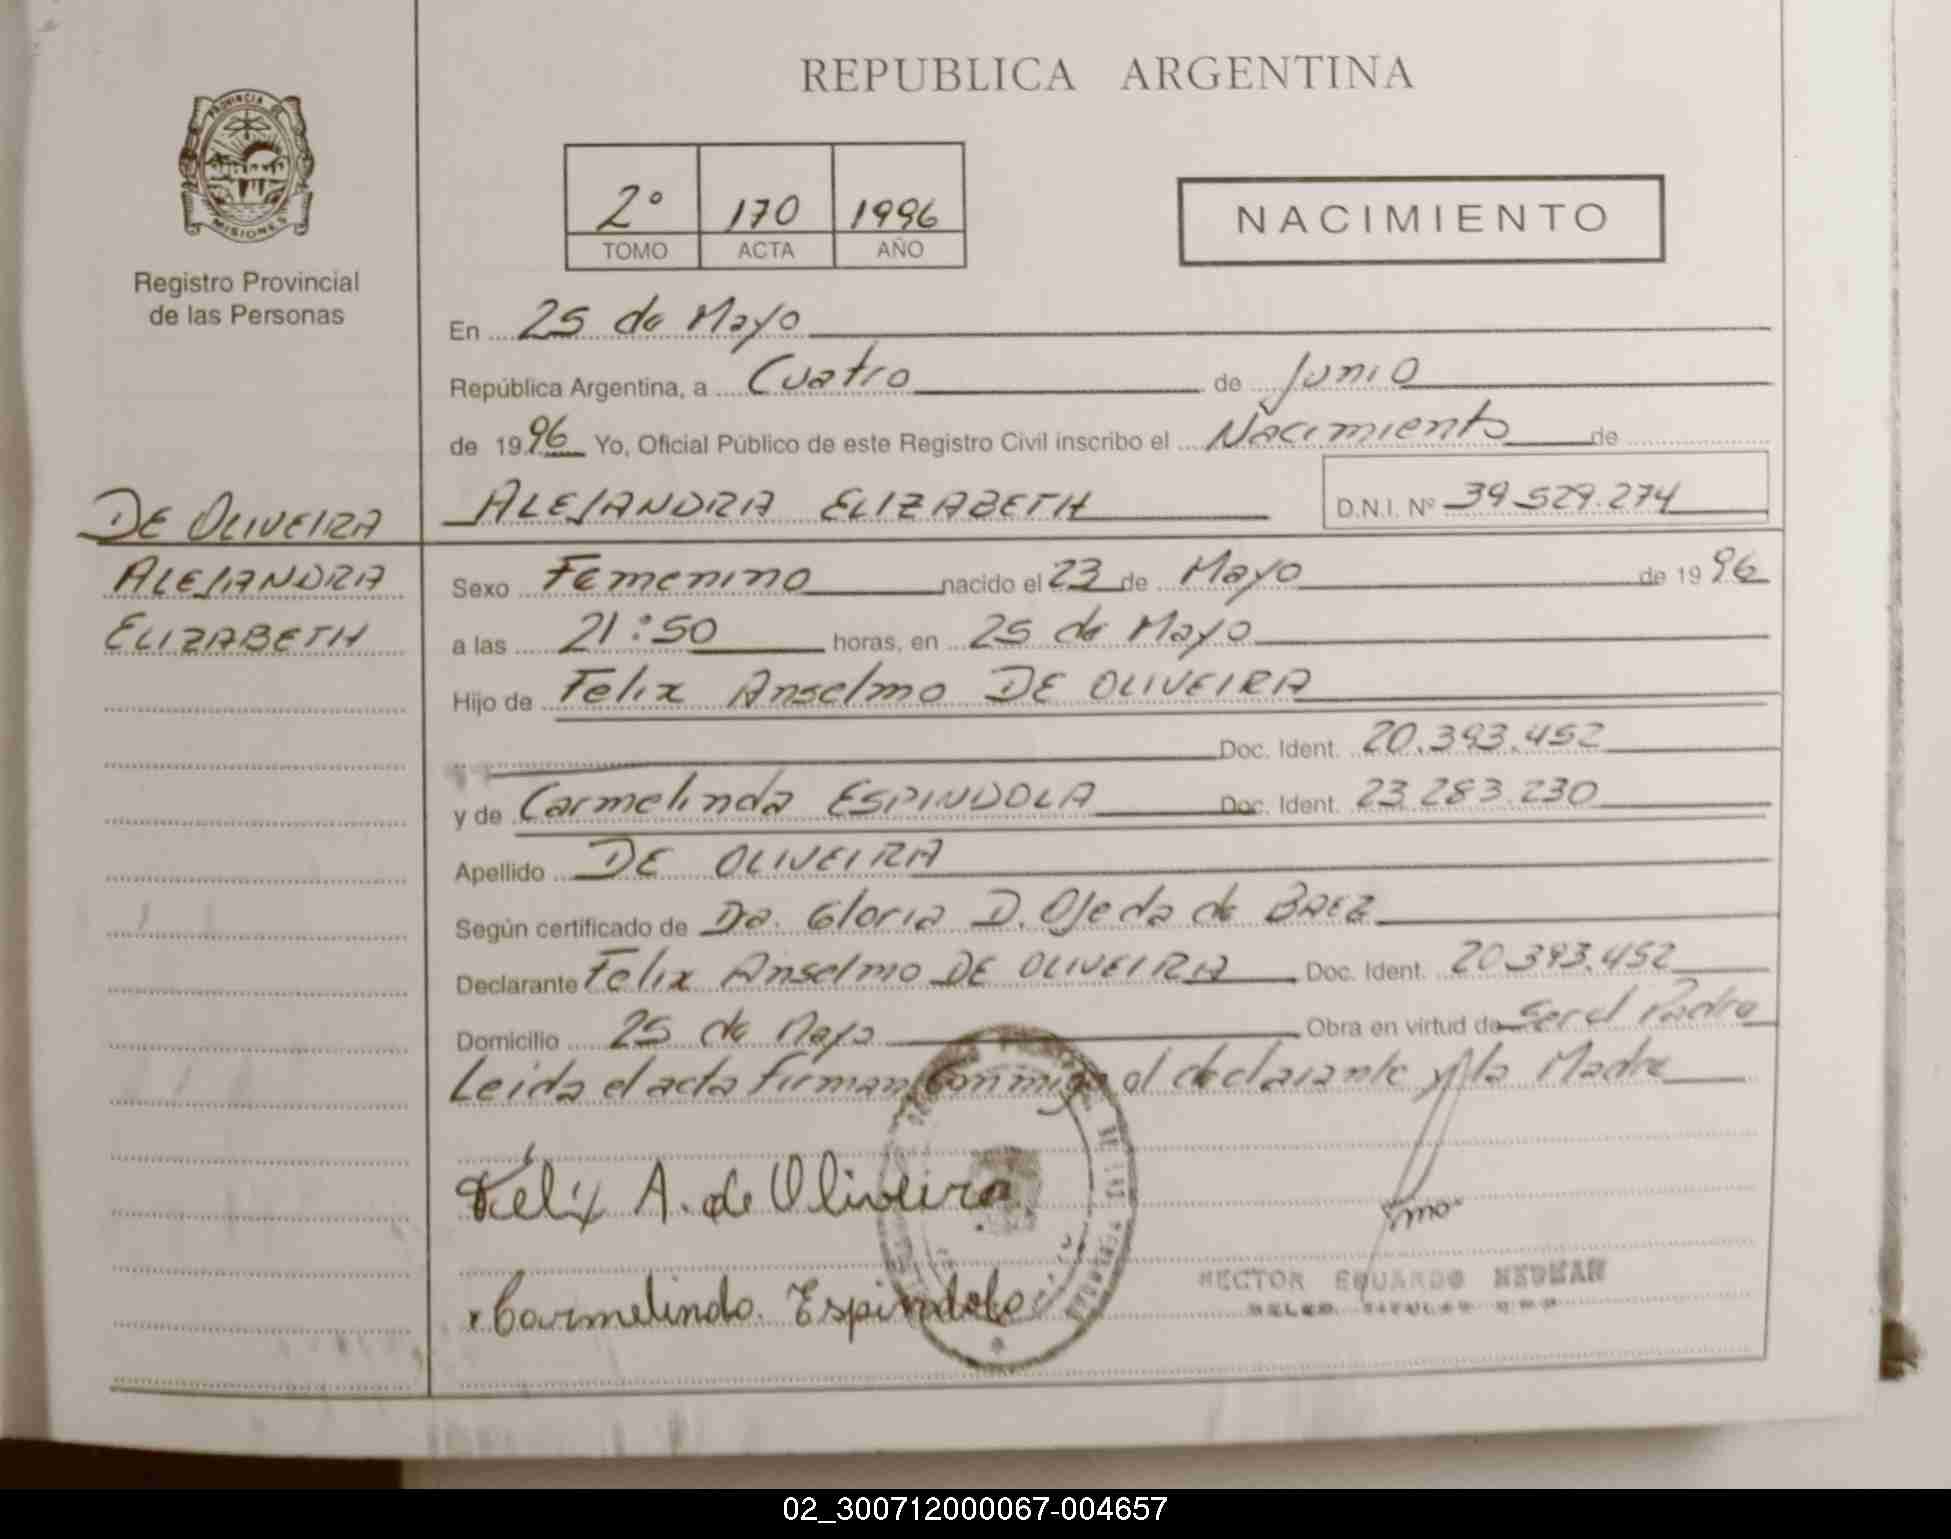 REPUBLICA ARGENTINA
PROVINCIA DE
MISIONES
Registro Provincial
de las Personas
2° 170 1996
TOMO ACTA AÑO
NACIMIENTO
En 25 de Mayo
República Argentina, a Cuatro de Junio
de 1996 Yo, Oficial Público de este Registro Civil inscribo el Nacimiento de
DE OLIVEIRA
ALEJANDRA
ELIZABETH
ALEJANDRA ELIZABETH D.N.I. Nº 39.529.274
Sexo Femenino nacido el 23 de Mayo de 1996
a las 21:50 horas, en 25 de Mayo
Hijo de Felix Anselmo DE OLIVEIRA
Doc. Ident. 20.393.452
y de Carmelinda ESPINDOLA Doc. Ident. 23.283.230
Apellido DE OLIVEIRA
Según certificado de Dra. Gloria D. Ojeda de BAEZ
Declarante Felix Anselmo DE OLIVEIRA Doc. Ident. 20.393.452
Domicilio 25 de Mayo Obra en virtud de ser el Padre
Leida el acta firman conmigo el declarante y la Madre
Felix A. de Oliveira
Carmelinda Espindola
HECTOR EDUARDO
02_300712000067-004657